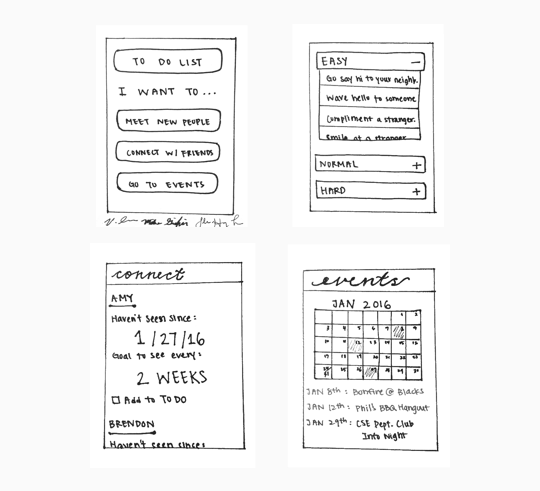 TO DO LIST
I WANT TO...
MEET NEW PEOPLE
CONNECT W/ FRIENDS
GO TO EVENTS
EASY –
Go say hi to your neighb.
Wave hello to someone
Compliment a stranger.
Smile at a stranger
NORMAL +
HARD +
connect
AMY
Haven't seen since:
1/27/16
Goal to see every:
2 WEEKS
Add to TO DO
BRENDON
Haven't seen since:
events
JAN 2016
JAN 8th: Bonfire @ Blacks
JAN 12th: Phil's BBQ Hangout
JAN 29th: CSE Dept. Club
Info Night